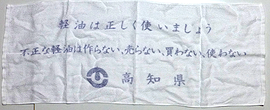 軽油は正しく使いましょう
不正な軽油は作らない、売らない、買わない、使わない
高知県